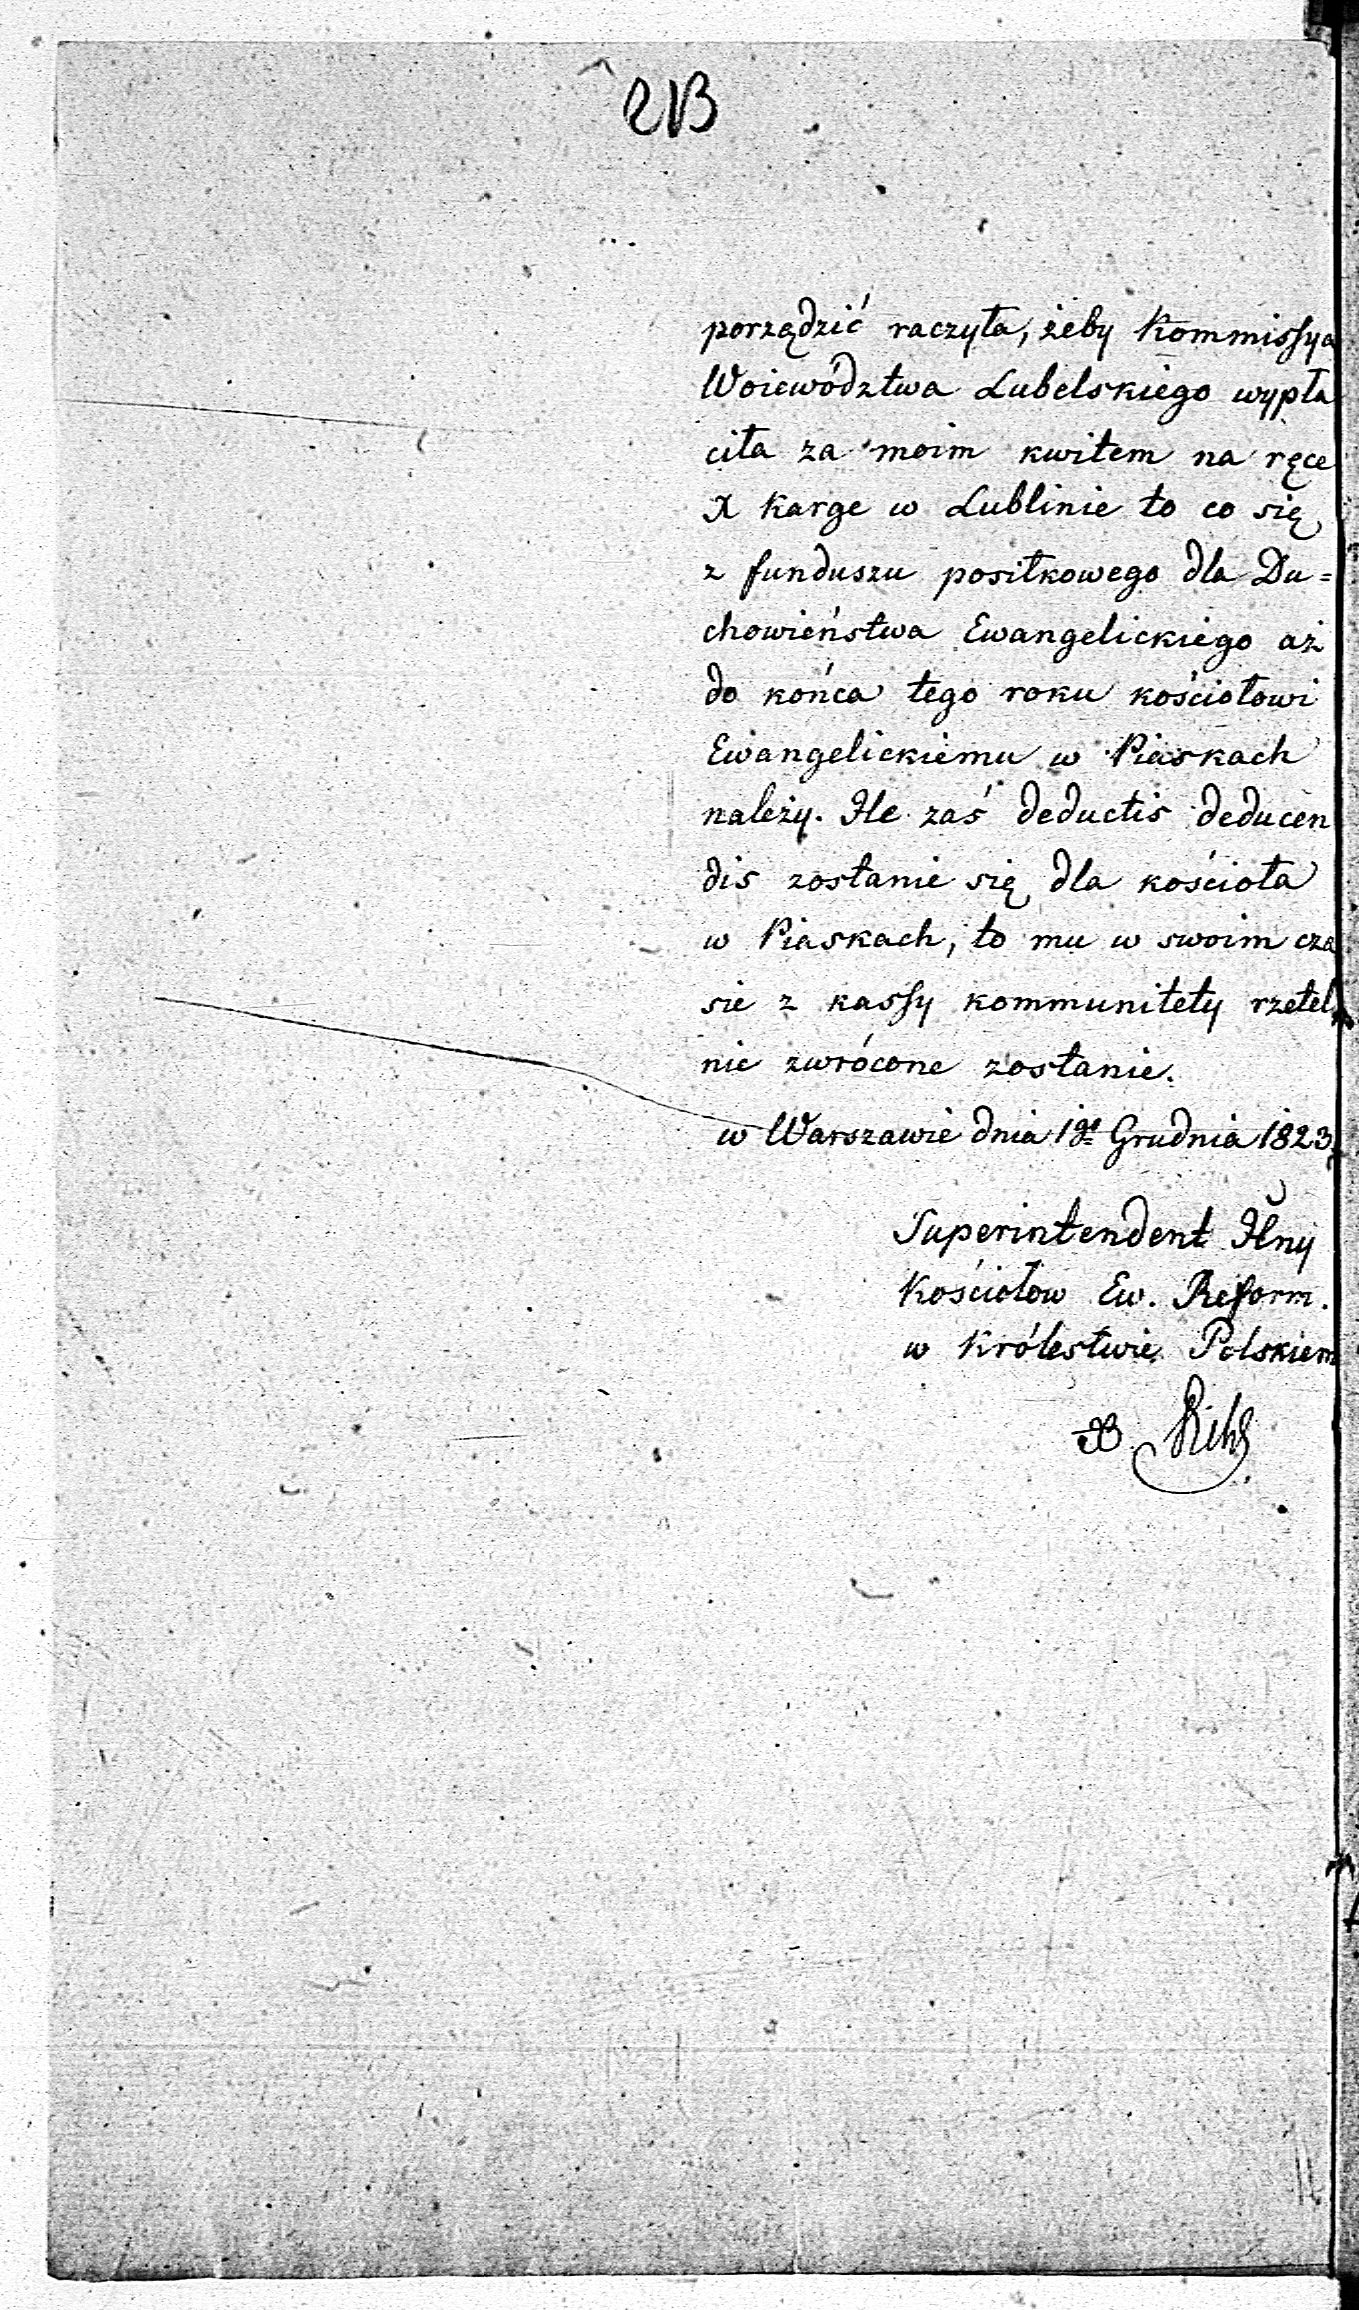 213
porządzić raczyła, żeby Kommissya
Woiewództwa Lubelskiego wypła
ciła za moim kwitem na ręce
X Karge w Lublinie to co się
z funduszu posiłkowego dla Du=
chowieństwa Ewangelickiego aż
do końca tego roku kościołowi
Ewangelickiemu w Piaskach
należy. Ile zaś deductis deducen
dis zostanie się dla kościoła
w Piaskach, to mu w swoim cza
sie z kassy kommunitety rzetel
nie zwrócone zostanie.
w Warszawie dnia 1go Grudnia 1823.
Superintendent Jlny
Kościołow Ew. Reform.
w Królestwie Polskiem